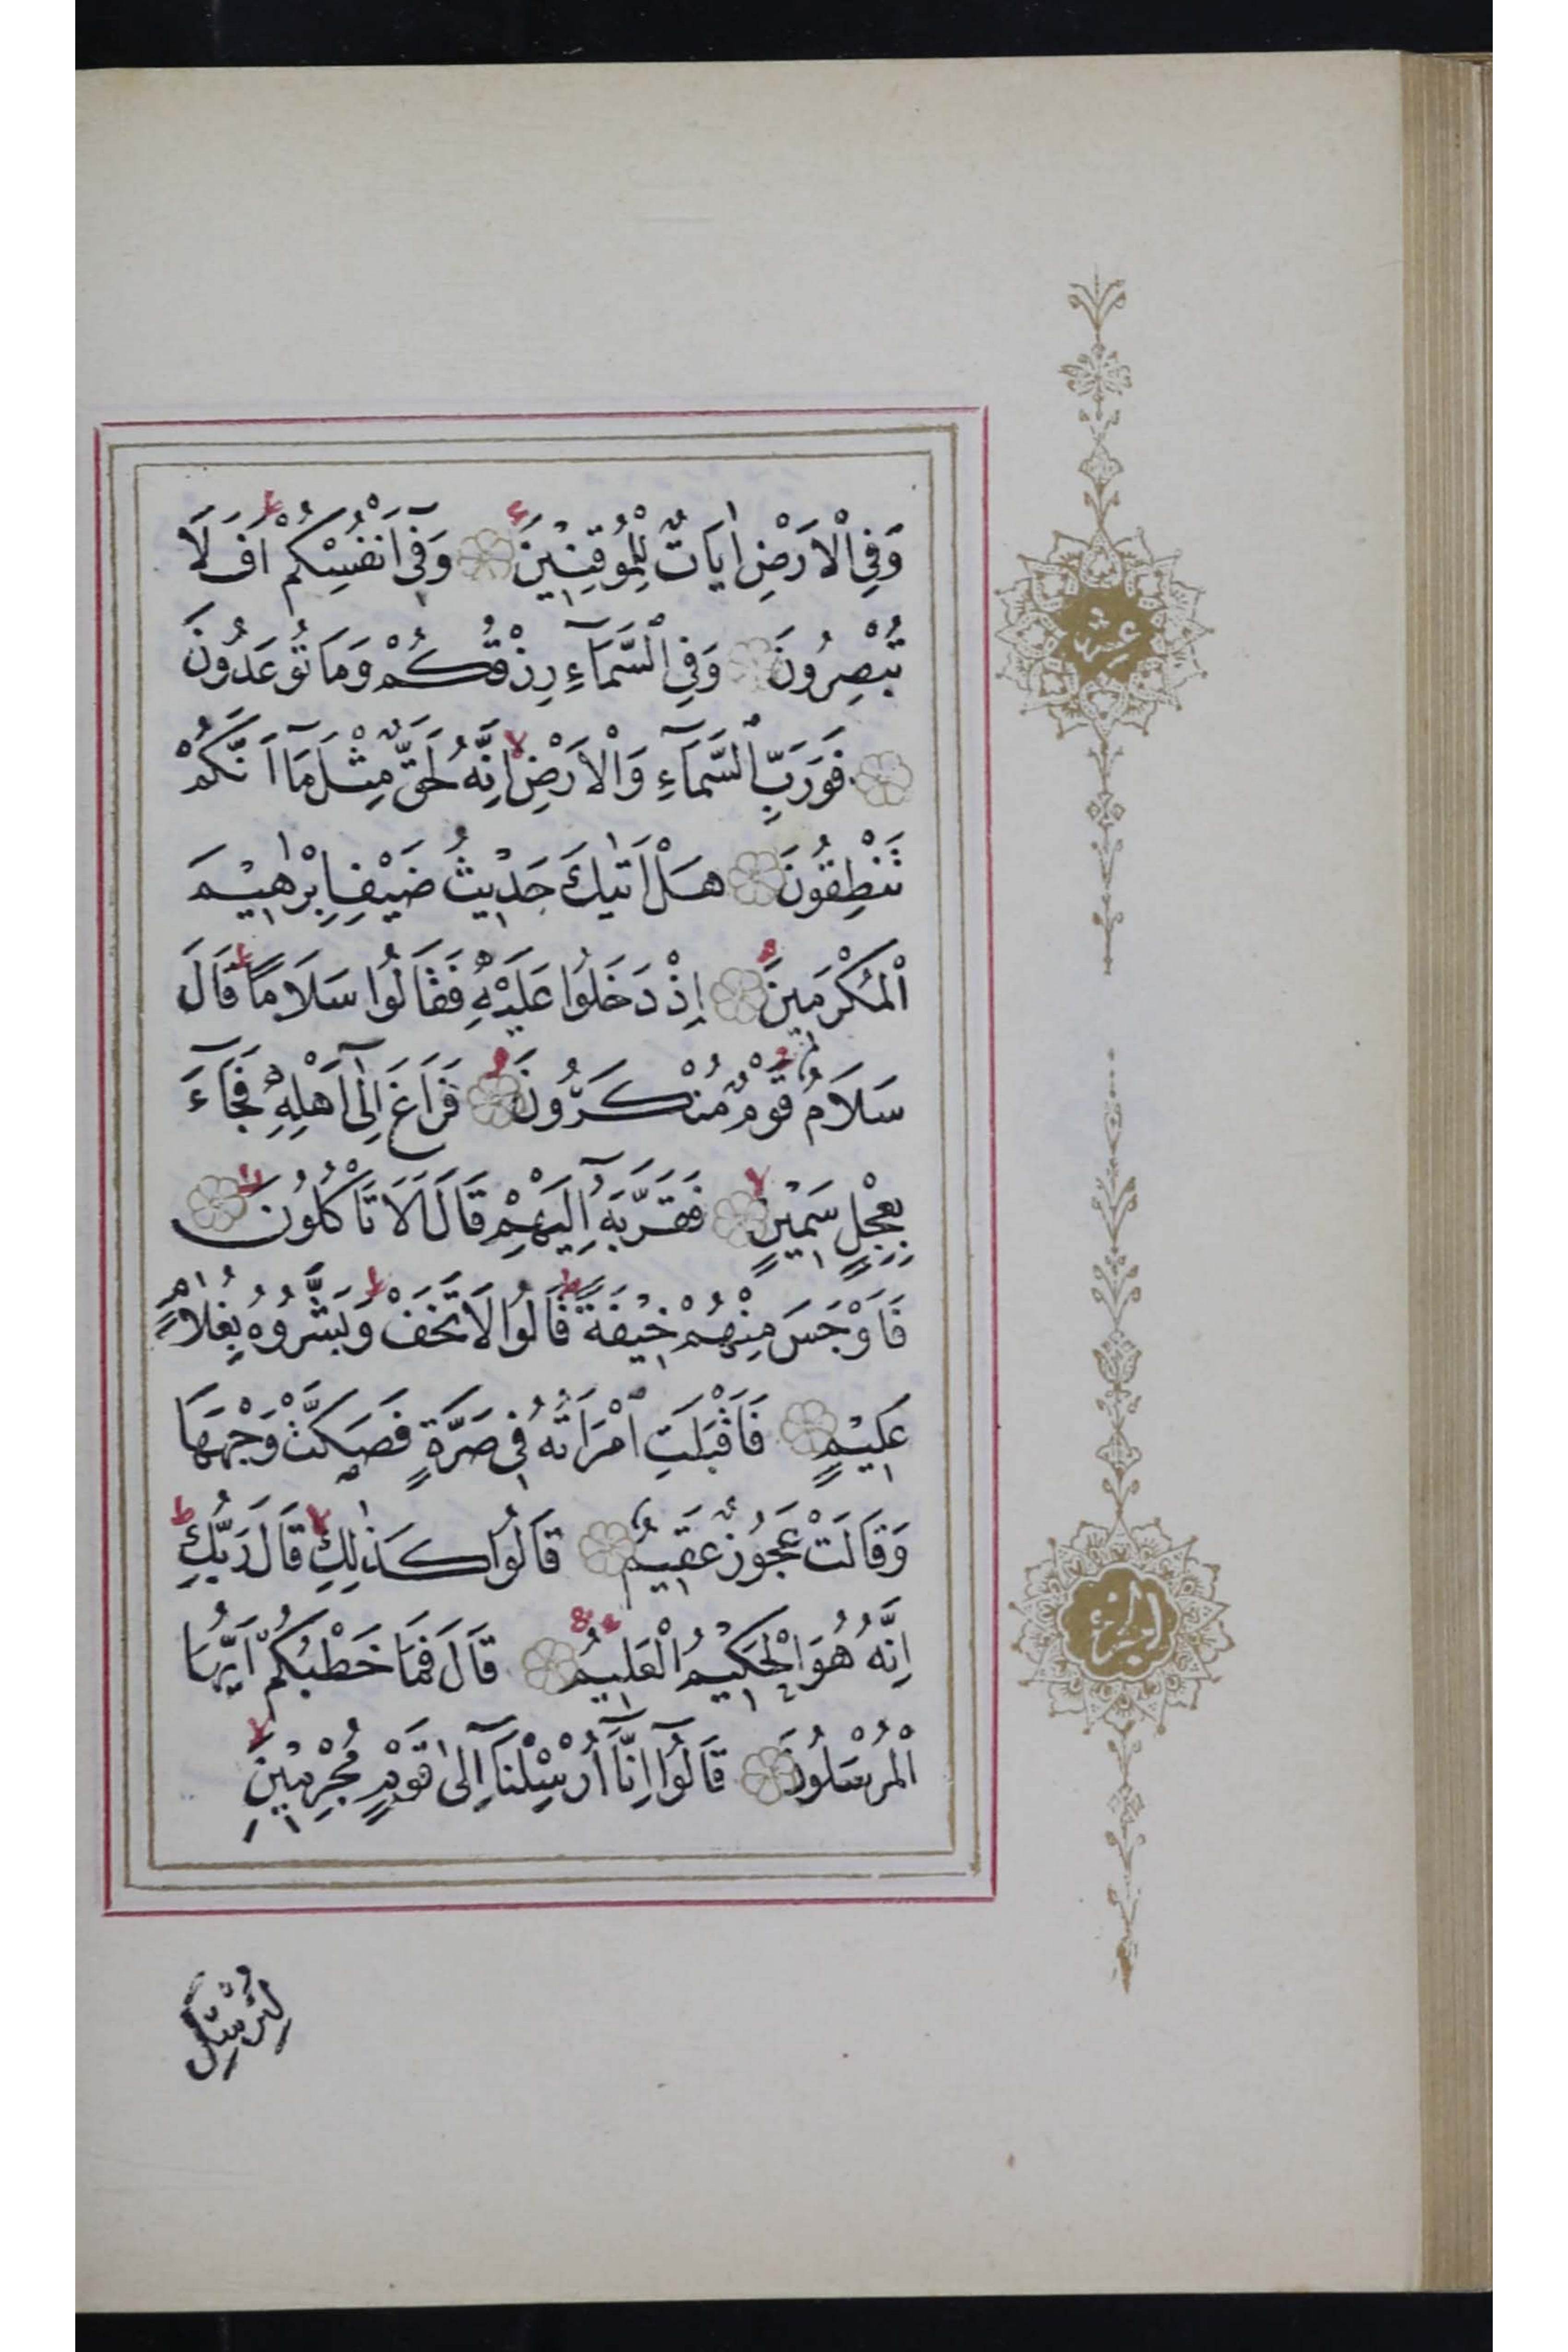 وَفِي الْاَرْضِ اٰيَاتٌ لِلْمُوقِنٖينَ وَفٖٓي اَنْفُسِكُمْ اَفَلَا
تُبْصِرُونَ وَفِي السَّمَٓاءِ رِزْقُكُمْ وَمَا تُوعَدُونَ
فَوَرَبِّ السَّمَٓاءِ وَالْاَرْضِ اِنَّهُ لَحَقٌّ مِثْلَ مَٓا اَنَّكُمْ
تَنْطِقُونَ هَلْ اَتٰيكَ حَدٖيثُ ضَيْفِ اِبْرٰهٖيمَ
الْمُكْرَمٖينَ اِذْ دَخَلُوا عَلَيْهِ فَقَالُوا سَلَامًا قَالَ
سَلَامٌ قَوْمٌ مُنْكَرُونَ فَرَاغَ اِلٰٓى اَهْلِهٖ فَجَٓاءَ
بِعِجْلٍ سَمٖينٍ فَقَرَّبَهُٓ اِلَيْهِمْ قَالَ اَلَا تَاْكُلُونَ
فَاَوْجَسَ مِنْهُمْ خٖيفَةً قَالُوا لَا تَخَفْ وَبَشَّرُوهُ بِغُلَامٍ
عَلٖيمٍ فَاَقْبَلَتِ امْرَاَتُهُ فٖي صَرَّةٍ فَصَكَّتْ وَجْهَهَا
وَقَالَتْ عَجُوزٌ عَقٖيمٌ قَالُوا كَذٰلِكِ قَالَ رَبُّكِ
اِنَّهُ هُوَ الْحَكٖيمُ الْعَلٖيمُ قَالَ فَمَا خَطْبُكُمْ اَيُّهَا
الْمُرْسَلُونَ قَالُٓوا اِنَّٓا اُرْسِلْنَٓا اِلٰى قَوْمٍ مُجْرِمٖينَ
لِنُرْسِلَ
عشر
الجزء